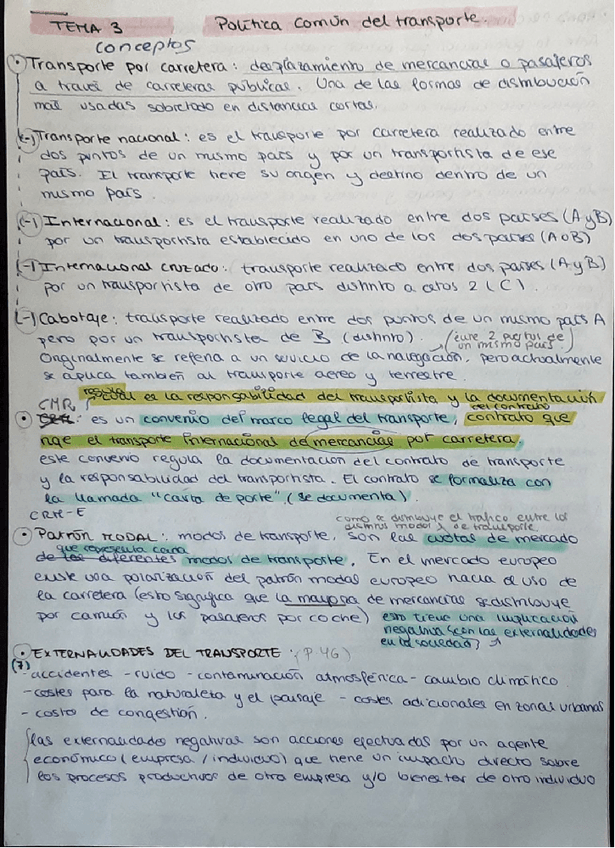 TEMA 3 Política Común del transporte.
conceptos
• Transporte por carretera: desplazamiento de mercancías o pasajeros
a través de carreteras públicas. Una de las formas de distribución
más usadas sobretodo en distancias cortas.
(-) Transporte nacional: es el transporte por carretera realizado entre
dos puntos de un mismo país y por un transportista de ese
país. El transporte tiene su origen y destino dentro de un
mismo país.
(-) Internacional: es el transporte realizado entre dos países (A y B)
por un transportista establecido en uno de los dos países (A o B)
(-) Internacional cruzado: transporte realizado entre dos países (A y B)
por un transportista de otro país distinto a estos 2 (C).
(-) Cabotaje: transporte realizado entre dos puntos de un mismo país A
pero por un transportista de B (distinto). (entre 2 puertos de
un mismo país)
Originalmente se refería a un servicio de la navegación, pero actualmente
se aplica también al transporte aéreo y terrestre.
regula cual es la responsabilidad del transportista y la documentación
del contrato
CMR
• : es un convenio del marco legal del transporte, contrato que
rige el transporte internacional de mercancías por carretera,
este convenio regula la documentación del contrato de transporte
y la responsabilidad del transportista. El contrato se formaliza con
la llamada "carta de porte", (se documenta).
CRM-E
como se distribuye el tráfico entre los
distintos modos de transporte
• Patrón MODAL: modos de transporte, son las cuotas de mercado
que representa cada
de los diferentes modos de transporte. En el mercado europeo
existe una polarización del patrón modal europeo hacia el uso de
la carretera (esto significa que la mayoría de mercancías se distribuye
por camión y los pasajeros por coche) esto tiene una implicación
negativa (son las externalidades
en la sociedad)
• EXTERNALIDADES DEL TRANSPORTE: (P.46)
(7)
- accidentes - ruido - contaminación atmosférica - cambio climático
- costes para la naturaleza y el paisaje - costes adicionales en zonas urbanas
- costo de congestión.
las externalidades negativas son acciones efectuadas por un agente
económico (empresa / individuo) que tiene un impacto directo sobre
los procesos productivos de otra empresa y/o bienestar de otro individuo